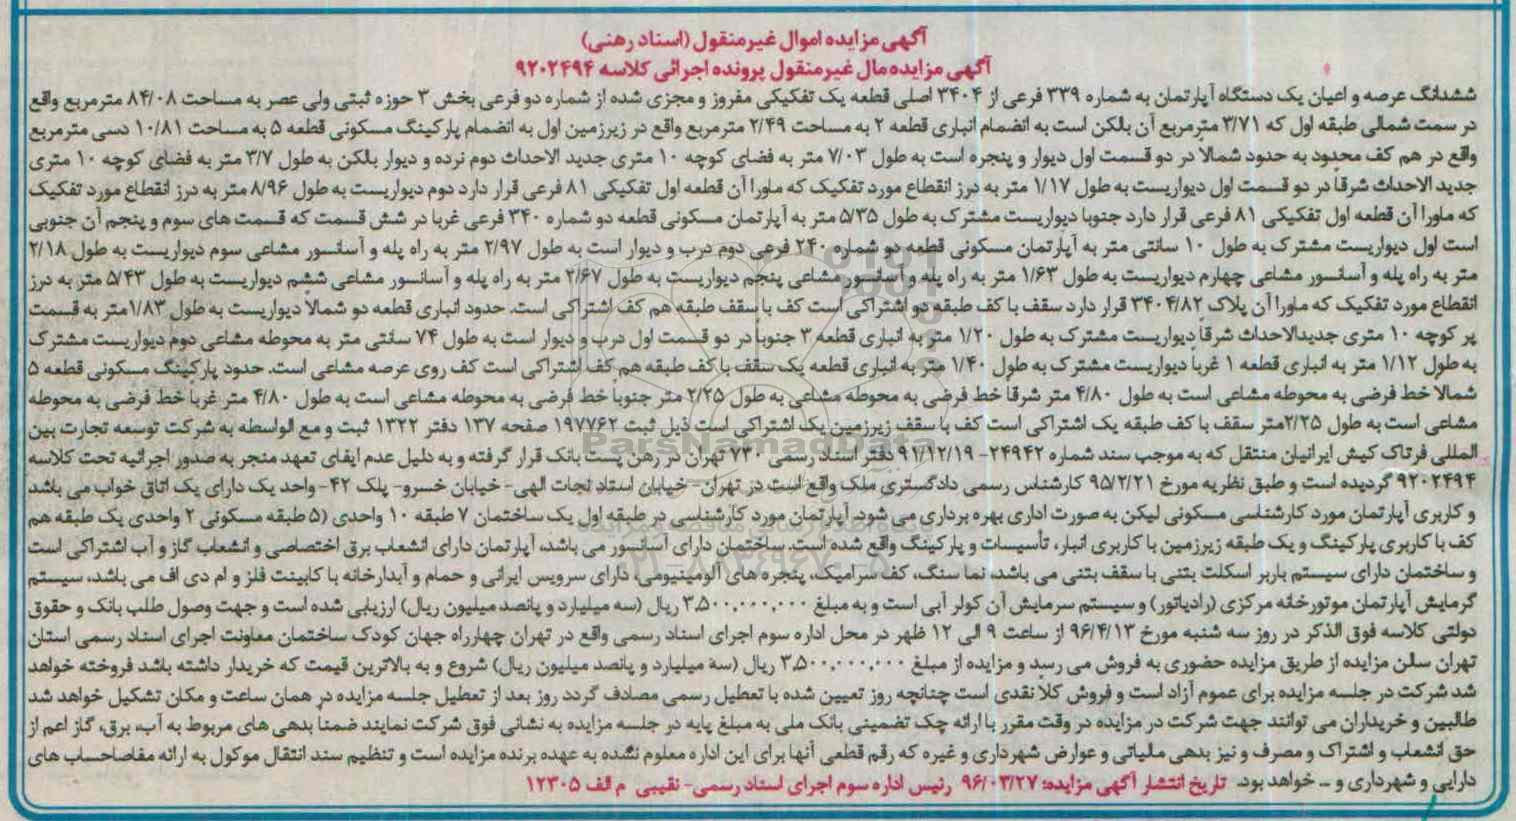 آگهی مزایده اموال غیرمنقول (اسناد رهنی)
آگهی مزایده مال غیرمنقول پرونده اجرائی کلاسه ۹۲۰۲۴۹۴
ششدانگ عرصه و اعیان یک دستگاه آپارتمان به شماره ۳۳۹ فرعی از ۳۴۰۴ اصلی قطعه یک تفکیکی مفروز و مجزی شده از شماره دو فرعی بخش ۳ حوزه ثبتی ولی عصر به مساحت ۸۴/۰۸ مترمربع واقع
در سمت شمالی طبقه اول که ۳/۷۱ مترمربع آن بالکن است به انضمام انباری قطعه ۲ به مساحت ۲/۴۹ مترمربع واقع در زیرزمین اول به انضمام پارکینگ مسکونی قطعه ۵ به مساحت ۱۰/۸۱ دسی مترمربع
واقع در هم کف محدود به حدود شمالا در دو قسمت اول دیوار و پنجره است به طول ۷/۰۳ متر به فضای کوچه ۱۰ متری جدید الاحداث دوم نرده و دیوار بالکن به طول ۳/۷ متر به فضای کوچه ۱۰ متری
جدید الاحداث شرقاً در دو قسمت اول دیواریست به طول ۱/۱۷ متر به درز انقطاع مورد تفکیک که ماورا آن قطعه اول تفکیکی ۸۱ فرعی قرار دارد دوم دیواریست به طول ۸/۹۶ متر به درز انقطاع مورد تفکیک
که ماورا آن قطعه اول تفکیکی ۸۱ فرعی قرار دارد جنوبا دیواریست مشترک به طول ۵/۳۵ متر به آپارتمان مسکونی قطعه دو شماره ۳۴۰ فرعی غربا در شش قسمت که قسمت های سوم و پنجم آن جنوبی
است اول دیواریست مشترک به طول ۱۰ سانتی متر به آپارتمان مسکونی قطعه دو شماره ۲۴۰ فرعی دوم درب و دیوار است به طول ۲/۹۷ متر به راه پله و آسانسور مشاعی سوم دیواریست به طول ۲/۱۸
متر به راه پله و آسانسور مشاعی چهارم دیواریست به طول ۱/۶۳ متر به راه پله و آسانسور مشاعی پنجم دیواریست به طول ۲/۶۷ متر به راه پله و آسانسور مشاعی ششم دیواریست به طول ۵/۴۳ متر به درز
انقطاع مورد تفکیک که ماورا آن پلاک ۳۴۰۴/۸۲ قرار دارد سقف با کف طبقه دو اشتراکی است کف با سقف طبقه هم کف اشتراکی است. حدود انباری قطعه دو شمالا دیواریست به طول ۱/۸۳متر به قسمت
پر کوچه ۱۰ متری جدیدالاحداث شرقاً دیواریست مشترک به طول ۱/۲۰ متر به انباری قطعه ۳ جنوباً در دو قسمت اول درب و دیوار است به طول ۷۴ سانتی متر به محوطه مشاعی دوم دیواریست مشترک
به طول ۱/۱۲ متر به انباری قطعه ۱ غرباً دیواریست مشترک به طول ۱/۴۰ متر به انباری قطعه یک سقف با کف طبقه هم کف اشتراکی است کف روی عرصه مشاعی است. حدود پارکینگ مسکونی قطعه ۵
شمالا خط فرضی به محوطه مشاعی است به طول ۴/۸۰ متر شرقا خط فرضی به محوطه مشاعی به طول ۲/۲۵ متر جنوباً خط فرضی به محوطه مشاعی است به طول ۴/۸۰ متر غربا خط فرضی به محوطه
مشاعی است به طول ۲/۲۵متر سقف با کف طبقه یک اشتراکی است کف با سقف زیرزمین یک اشتراکی است ذیل ثبت ۱۹۷۷۶۲ صفحه ۱۳۷ دفتر ۱۳۲۲ ثبت و مع الواسطه به شرکت توسعه تجارت بین
المللی فرتاک کیش ایرانیان منتقل که به موجب سند شماره ۲۴۹۴۲- ۹۱/۱۲/۱۹ دفتر اسناد رسمی ۷۳۰ تهران در رهن پست بانک قرار گرفته و به دلیل عدم ایفای تعهد منجر به صدور اجرائیه تحت کلاسه
۹۲۰۲۴۹۴ گردیده است و طبق نظریه مورخ ۹۵/۲/۲۱ کارشناس رسمی دادگستری ملک واقع است در تهران- خیابان استاد نجات الهی- خیابان خسرو- پلک ۴۲- واحد یک دارای یک اتاق خواب می باشد
و کاربری آپارتمان مورد کارشناسی مسکونی لیکن به صورت اداری بهره برداری می شود. آپارتمان مورد کارشناسی در طبقه اول یک ساختمان ۷ طبقه ۱۰ واحدی (۵ طبقه مسکونی ۲ واحدی یک طبقه هم
کف با کاربری پارکینگ و یک طبقه زیرزمین با کاربری انبار، تأسیسات و پارکینگ واقع شده است. ساختمان دارای آسانسور می باشد، آپارتمان دارای انشعاب برق اختصاصی و انشعاب گاز و آب اشتراکی است
و ساختمان دارای سیستم باربر اسکلت بتنی با سقف بتنی می باشد، نما سنگ، کف سرامیک، پنجره های آلومینیومی، دارای سرویس ایرانی و حمام و آبدارخانه با کابینت فلز و ام دی اف می باشد، سیستم
گرمایش آپارتمان موتورخانه مرکزی (رادیاتور) و سیستم سرمایش آن کولر آبی است و به مبلغ ۳،۵۰۰،۰۰۰،۰۰۰ ریال (سه میلیارد و پانصد میلیون ریال) ارزیابی شده است و جهت وصول طلب بانک و حقوق
دولتی کلاسه فوق الذکر در روز سه شنبه مورخ ۹۶/۴/۱۳ از ساعت ۹ الی ۱۲ ظهر در محل اداره سوم اجرای اسناد رسمی واقع در تهران چهارراه جهان کودک ساختمان معاونت اجرای اسناد رسمی استان
تهران سالن مزایده از طریق مزایده حضوری به فروش می رسد و مزایده از مبلغ ۳،۵۰۰،۰۰۰،۰۰۰ ریال (سه میلیارد و پانصد میلیون ریال) شروع و به بالاترین قیمت که خریدار داشته باشد فروخته خواهد
شد شرکت در جلسه مزایده برای عموم آزاد است و فروش کلاً نقدی است چنانچه روز تعیین شده با تعطیل رسمی مصادف گردد روز بعد از تعطیل جلسه مزایده در همان ساعت و مکان تشکیل خواهد شد
طالبین و خریداران می توانند جهت شرکت در مزایده در وقت مقرر با ارائه چک تضمینی بانک ملی به مبلغ پایه در جلسه مزایده به نشانی فوق شرکت نمایند ضمناً بدهی های مربوط به آب، برق، گاز اعم از
حق انشعاب و اشتراک و مصرف و نیز بدهی مالیاتی و عوارض شهرداری و غیره که رقم قطعی آنها برای این اداره معلوم نشده به عهده برنده مزایده است و تنظیم سند انتقال موکول به ارائه مفاصاحساب های
دارایی و شهرداری و ... خواهد بود. تاریخ انتشار آگهی مزایده: ۹۶/۰۳/۲۷ رئیس اداره سوم اجرای اسناد رسمی- نقیبی م الف ۱۲۳۰۵
ParsNamadData